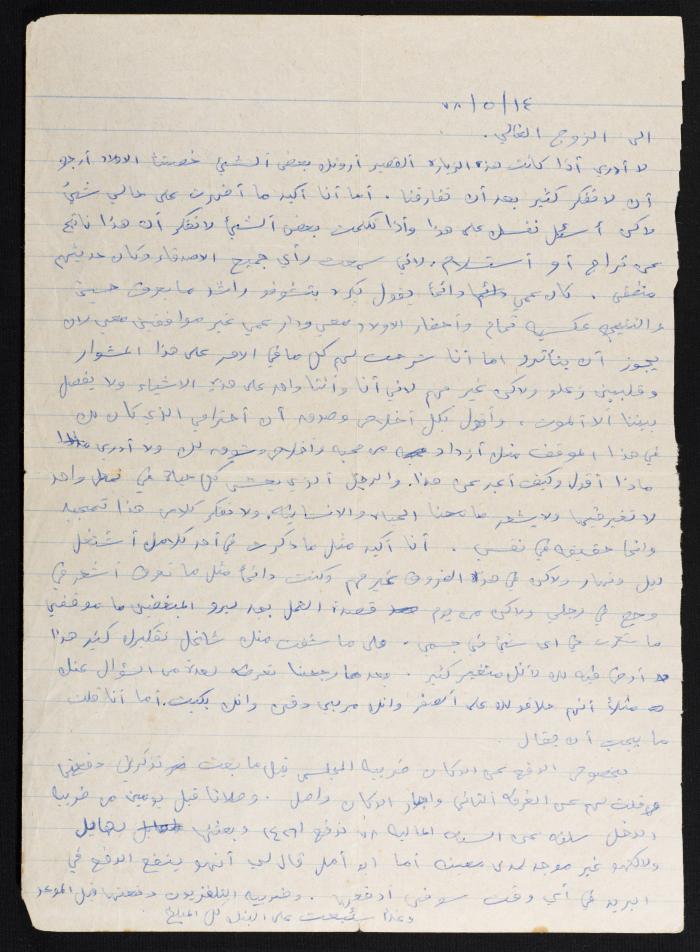 ١٤/٥/٧٨
الى الزوج الغالي.
لا أدرى أذا كانت هذه الزياره القصير أروتك بعض الشيئ خصيتا الاولاد أرجو
أن لا تفكر كثير بعد أن تفارقنا. أما أنا أكيد ما أضهرت على حالي شيئ
لاكن أسئل نفسك على هذا وأذا تكلمت بعض الشيئ لا تفكر أن هذا ناتج
عن تراجع أو أستسلام. لاني سمعت رأي جميع الاصدقاء وكان حديثهم
منطقي. كان عمي دائماً يقول بكره بتشوفو راشد ما بعرف حسين
والنتيجه عكسيه تمام وأحضار الاولاد معي ودار عمي غير موافقين معي لان
يجوز أن يتأثرو اما أنا شرحت لهم كل ما في الامر على هذا المشوار
وقلبين زعلو ولاكن غير مهم لاني أنا وأنتا واحد على هذي الاشياء ولا يفصل
بيننا ألا ألموت. وأقول بكل أخلاص وصدق أن أحترامي الذي كان لك
في هذا الموقف منك أزداد من محبه وأخلاص وشوق لك ولا أدرى
ماذا أقول وكيف أعبر عن هذا. والرجل ألذي يعيش كل حياة في نمط واحد
لا تغير فيها ولا يشعر ما معنا الحياه والانسانيه. ولا تفكر كلامي هذا تمجيد
وانما حقيقه في نفسي. أنا أكيد مثل ما ذكرت في أحد كلامك أشتغل
ليل ونهار ولاكن في هذه الضروف غير مهم وكنت دائماً مثل ما تعرف أشعر في
وجع في رجلي ولاكن من يوم قصدة العمل بعد ليرو المتغطين ما موقفي
ما شعرت في اى شيئ في جسمي. على ما شفت منك شاغل تفكيرك كثير هذا
أرض فيه لاكن متغير كثير. بعد ما رجعنا تعرف بعدة من السؤال عنك
مثلاً أنهم حلاقو لك على الصفر وانك مربى دقن وانك بكيت. أما أنا قلت
ما يجب أن يقال
بخصوص الدفع عن الدكان ضريبه المجلس قبل ما بعت تذكري دفعتي
وقلت لهم عن الغرفه الثاني والدكان واصل. وصلانا قبل يومين من ضريبه
الدخل سلفه عن السنه الماليه ٧٨ ندفع ١٤٢٦ وبعثها لهايل
ولاكنهو غير موجد لمدى معينه أما ابو أمل قال لي أنهو ينفع الدفع في
البريد في أي وقت سوفى أدفعها. وضريبه التلفزيون دفعتها قبل الموعد
وغدا سئبعت على البنك كل المبلغ